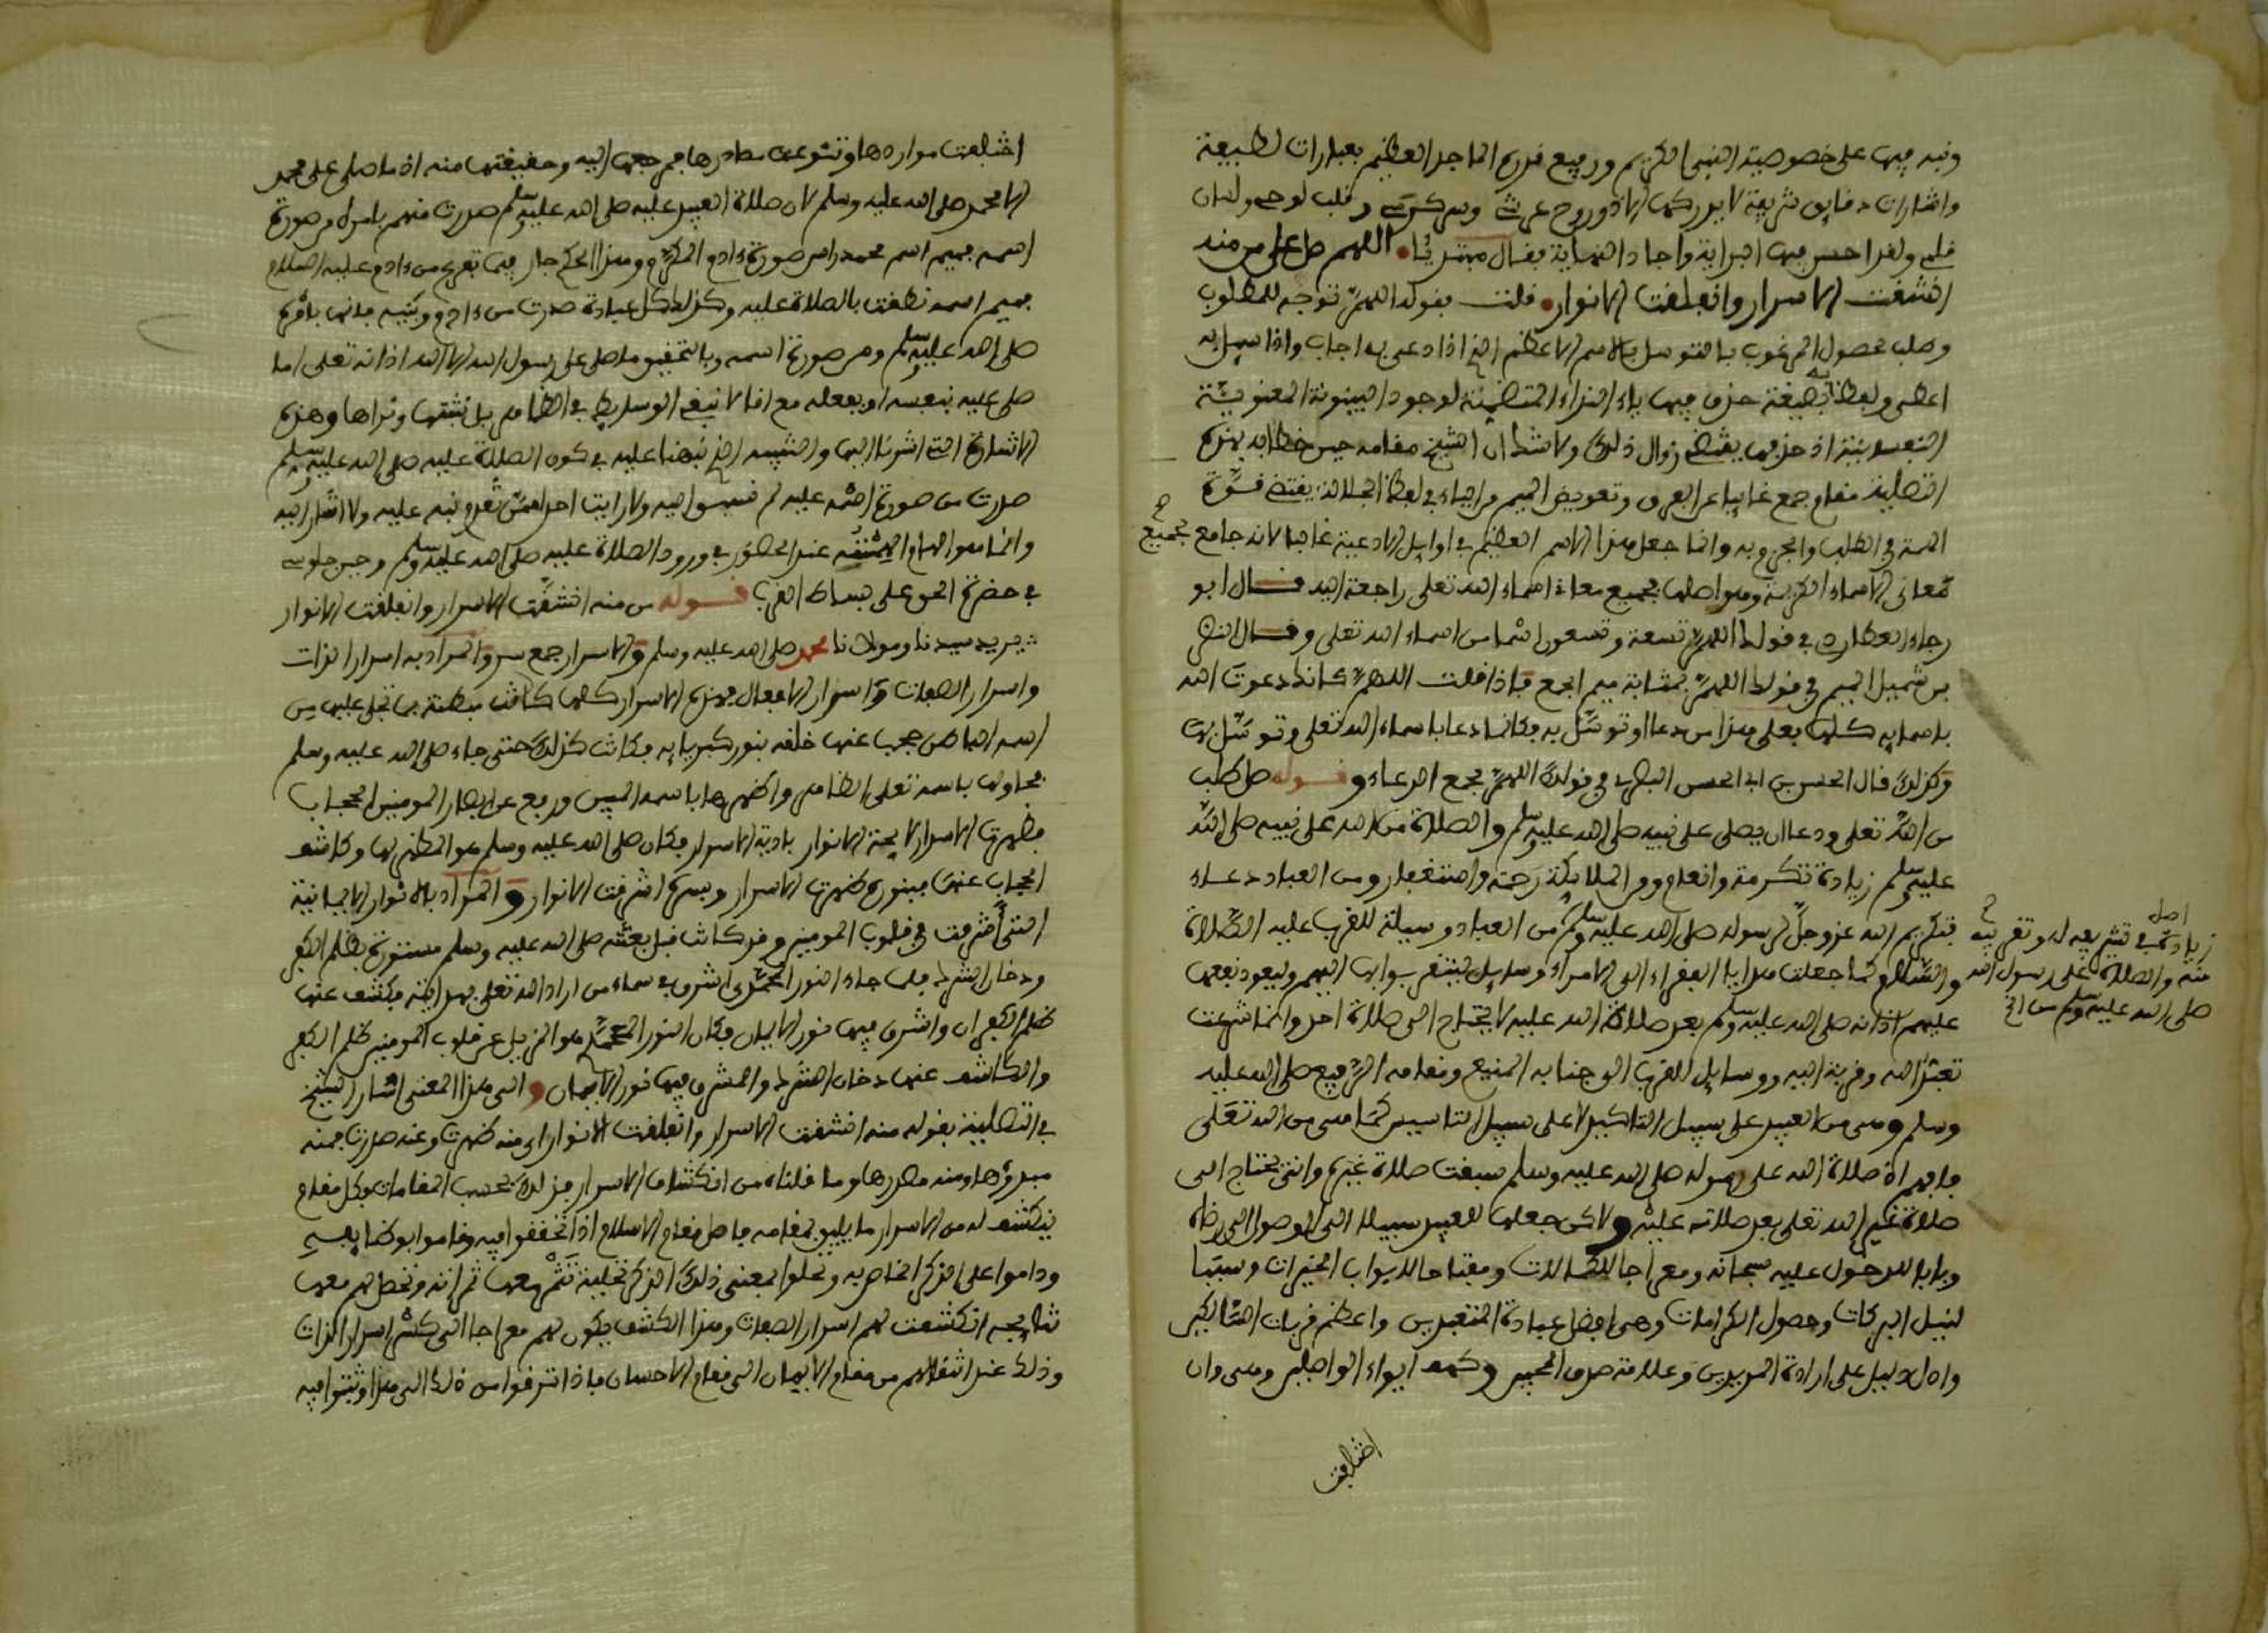 ونبه فيها على خصوصية النبي الكريم ورفيع قدره الماجد العظيم بعبارات لطيفة
واشارات دقايق شريفة لا يدركها الا ذو روح عرشي وسر كرسي وقلب لوحي ولسان
قلمي ولقد احسن فيها البداية واجاد النهاية فقال مبتديا اللهم صل على من منه
انشقت الاسرار وانفلقت الانوار قلت بقوله اللهم توجه للمطلوب
وطلب حصول المرغوب بالتوسل بالاسم الاعظم الذي اذا دعي به اجاب واذا سيل به
اعطى ولفظا بصيغة حذف فيها ياء النداء المتضمنة لوجود البينونة المعنوية
النفسانية اذ حذفها يقتضي زوال ذلك ولا شك ان الشيخ مقامه حين خطابه بهذه
التصلية مقام جمع غايبا عن الفرق وتعويض الميم من الياء في لفظ الجلالة يقتضي قوة
الهمة في الطلب والجزم به وانما جعل هذا الاسم العظيم في اوايل الادعية غالبا لانه جامع لجميع
معاني الاسماء الكريمة وهو اصلها فجميع معاني اسماء الله تعلى راجعة اليه قال ابو
رجاء العطاردي في قولك اللهم تسعة وتسعون اسما من اسماء الله تعلى وقال النضر
بن شميل الميم في قولك اللهم بمثابة ميم الجمع فاذا قلت اللهم كانك دعوت الله
باسمايه كلها فعلى هذا من دعا او توسل به فكانما دعا باسماء الله تعلى وتوسل بها
وكذلك قال الحسن بن ابي الحسن البصري في قولك اللهم مجمع الدعاء وقوله صل طلب
من الله تعلى ودعا ان يصلي على نبيه صلى الله عليه وسلم والصلاة من الله على نبيه صلى الله
عليه وسلم زيادة تكرمة وانعام ومن الملايكة رحمة واستغفار ومن العباد دعاء
فتكريم الله عز وجل لرسوله صلى الله عليه وسلم من العباد وسيلة للقرب عليه الصلاة
والسلام كما جعلت هدايا الفقراء الى الامراء وسايل ليتقربوا بها اليهم وليعود نفعها
عليهم اذ انه صلى الله عليه وسلم بعد صلاة الله عليه لا يحتاج الى صلاة احد وانما شرعت
تعبدا لله وقربة اليه ووسايل للقرب الى جنابه المنيع ومقامه الرفيع صلى الله عليه
وسلم وهي من العبيد على سبيل التاكيد لا على سبيل التاسيس كما هي من الله تعلى
فافهم اذ صلاة الله على رسوله صلى الله عليه وسلم سبقت صلاة غيره وانى يحتاج الى
صلاة غير الله تعلى بعد صلاته عليه ولاكن جعلها للعبيد سبيلا الى الوصول الى رضاه
وبابا للدخول عليه سبحانه ومعراجا للكمالات ومفتاحا لابواب الخيرات وسببا
لنيل البركات وحصول الكرامات وهي افضل عبادة المتعبدين واعظم قربات السالكين
وادل دليل على ارادة المريدين وعلامة صدق المحبين وكهف ايواء الواصلين وهي وان
اختلفت
اصل
زيادة في تشريفه له وتقريبه
منه والصلاة على رسول الله
صلى الله عليه وسلم من الخ
اختلفت مواردها وتنوعت مصادرها فمرجعها اليه وحقيقتها منه اذ ما صلى على محمد
الا محمد صلى الله عليه وسلم لان صلاة العبيد عليه صلى الله عليه وسلم صدرت منهم بامره من صورة
اسمه فميم اسم محمد راس صورة ءادم المكرم وهذا الحكم جار فيما تفرع من ءادم عليه السلام
فميم اسمه نطقت بالصلاة عليه وكذلك كل عبادة صدرت من ءادم وبنيه فانها بامره
صلى الله عليه وسلم ومن صورة اسمه وبالتحقيق ما صلى على رسول الله الا الله اذ انه تعلى اما
صلى عليه بنفسه او بفعله مع انا لا ننفي الوسايط في الظاهر بل نثبتها ونراها وهذه
الاشارة التي اشرنا اليها والتنبيه الذي نبهنا عليه في كون الصلاة عليه صلى الله عليه وسلم
صدرت من صورة اسمه عليه لم نسبق اليه ولا رايت احدا ممن تقدم نبه عليه ولا اشار اليه
وانما هو الهام الهمته عند الحضور في ورود الصلاة عليه صلى الله عليه وسلم وحين جلوسي
في حضرة الحق على بساط القرب قوله من منه انشقت الاسرار وانفلقت الانوار
يريد سيدنا ومولانا محمد صلى الله عليه وسلم والاسرار جمع سر والمراد به اسرار الذات
واسرار الصفات واسرار الافعال فهذه الاسرار كلها كانت مبطنة بما تجلى عليها من
اسمه الباطن حجب عنها خلقه بنور كبريايه فكانت كذلك حتى جاء صلى الله عليه وسلم
فجلاها باسمه تعلى الظاهر واظهرها باسمه المبين ورفع عن ابصار المومنين الحجاب
فظهرت الاسرار لايحة الانوار بادية الاسرار فكان صلى الله عليه وسلم هو المظهر لها وكاشف
الحجاب عنها فبنوره ظهرت الاسرار وبسره اشرقت الانوار والمراد بالانوار الايمانية
التي اشرقت في قلوب المومنين وقد كانت قبل بعثه صلى الله عليه وسلم مستورة بظلم الكفر
ودخان الشرك فلما جاء النور المحمدي اشرق في سماء من اراد الله تعلى بهدايته فكشف عنها
ظلم الكفران واشرق فيها نور الايمان فكان النور المحمدي هو المزيل عن قلوب المومنين ظلم الكفر
والكاشف عنها دخان الشرك والمشرق فيها نور الايمان والى هذا المعنى اشار الشيخ
في التصلية بقوله منه انشقت الاسرار وانفلقت الانوار اي منه ظهرت وعنه صدرت فمنه
مبدؤها ومنه مصدرها وما قلناه من انكشاف الاسرار فذلك بحسب المقامات فكل مقام
ينكشف له من الاسرار ما يليق بمقامه فاهل مقام الاسلام اذا تحققوا فيه وقاموا بوظايفه
وداموا على الذكر الخاص به وتحلوا بمعنى ذلك الذكر تحلية تثمر معها ثمراته وتحصل لهم معها
نتايجه انكشفت لهم اسرار الصفات وهذا الكشف يكون لهم معراجا الى كشف اسرار الذات
وذلك عند انتقالهم من مقام الايمان الى مقام الاحسان فاذا ترقوا من ذلك الى هذا وثبتوا فيه